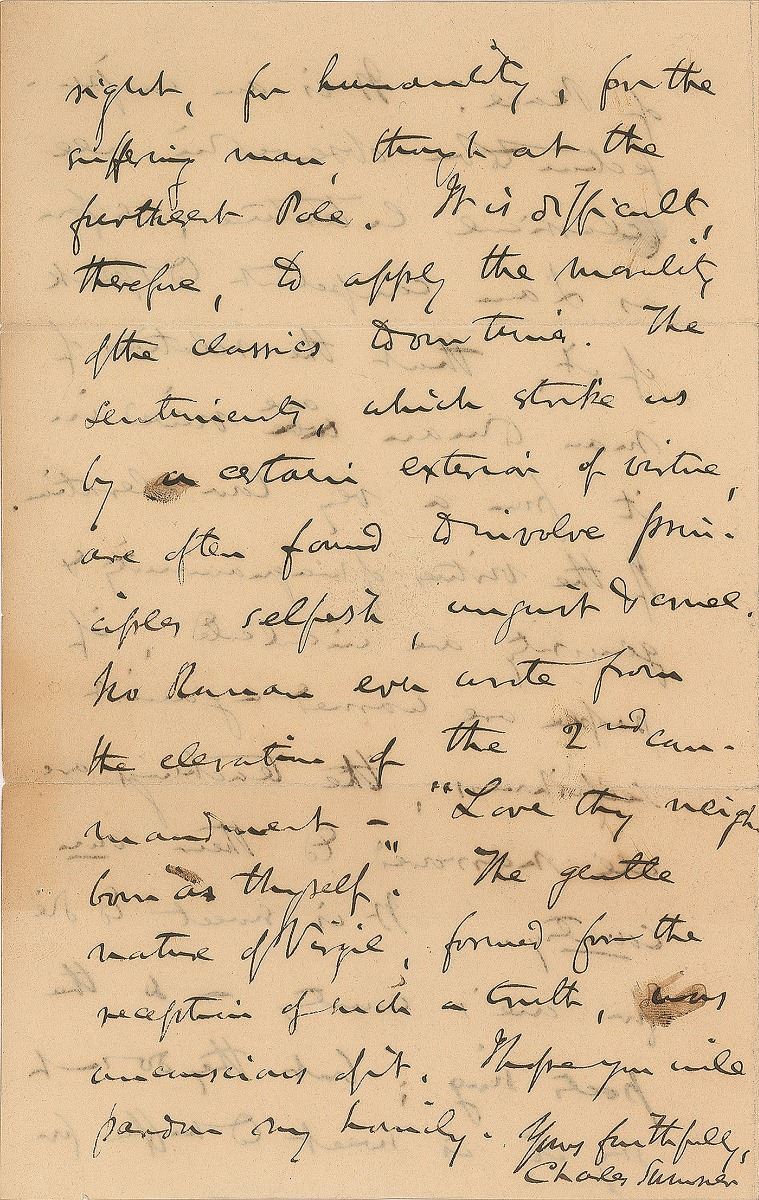 right, for humanity, for the
suffering man, though at the
furthest Pole. It is difficult,
therefore, to apply the morality
of the classics to our times. The
sentiments, which strike us
by a certain exterior of virtue,
are often found to involve prin-
ciples selfish, unjust & cruel.
No Roman ever wrote from
the elevation of the 2nd com-
mandment - "Love thy neigh
bour as thyself". The gentle
nature of Virgil, formed for the
reception of such a truth, was
unconscious of it. I hope you will
pardon my homily. Yours faithfully,
Charles Sumner